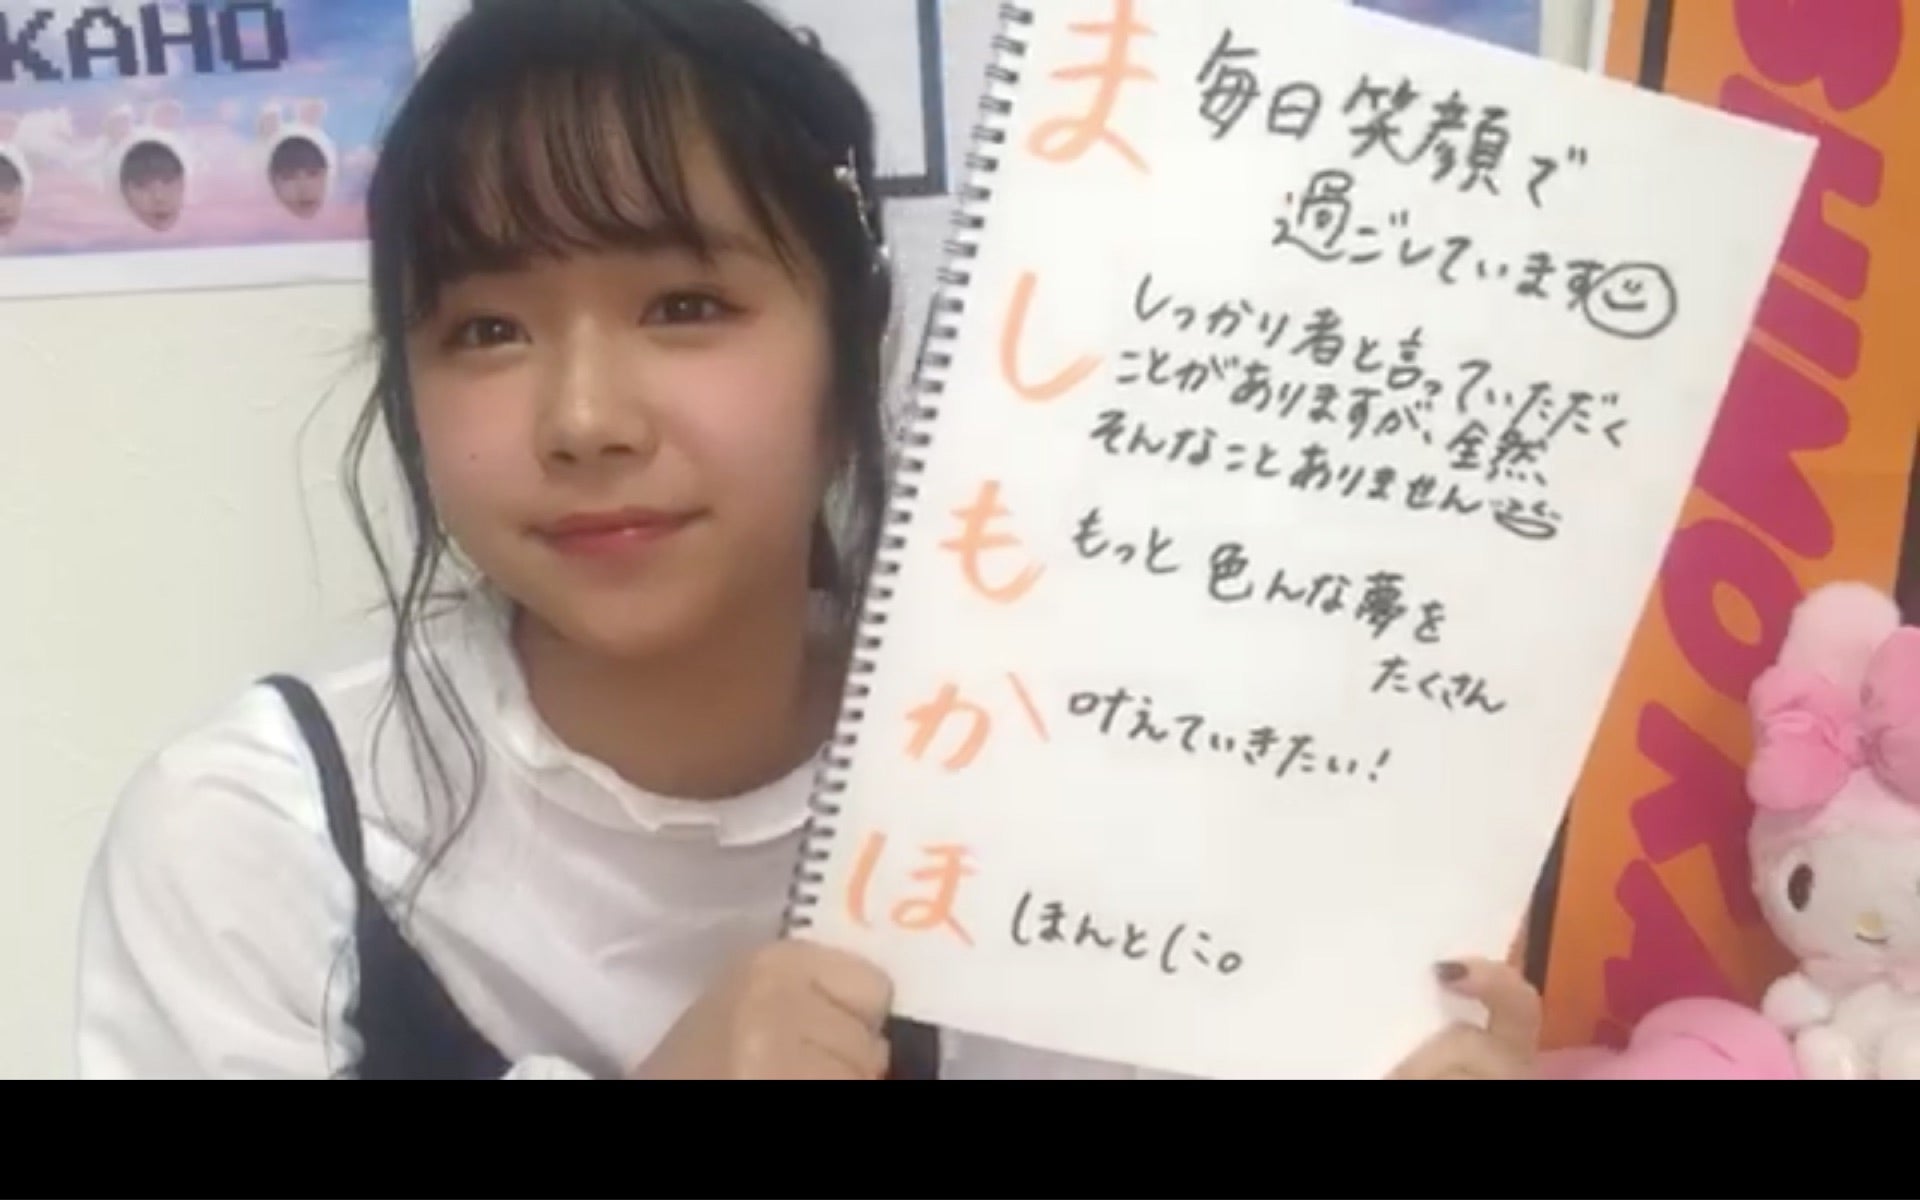 KAHO
ま
毎日笑顔で
過ごしています
し
しっかり者と言っていただく
ことがありますが、全然
そんなことありません
も
もっと色んな夢を
たくさん
か
叶えていきたい!
ほ
ほんとに。
SHIMO